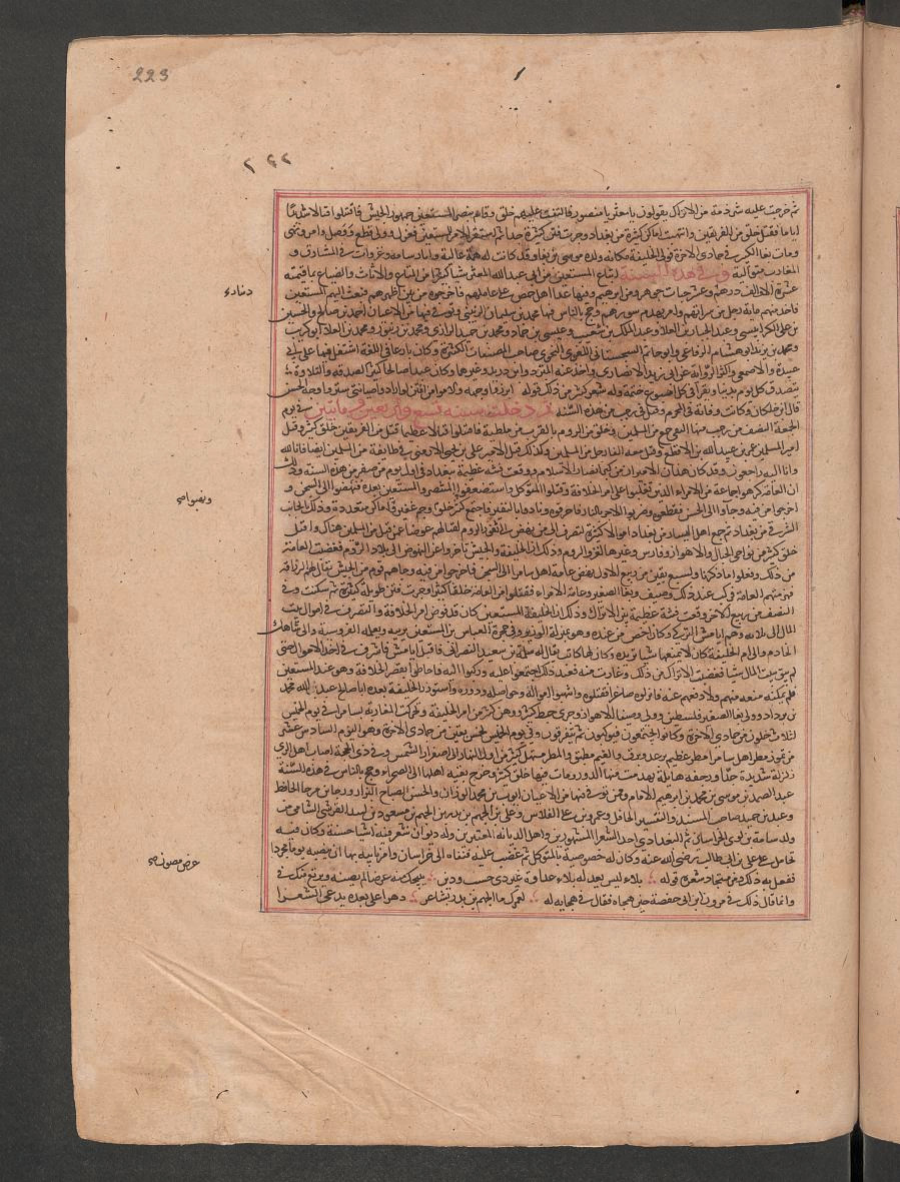 223
٢٤٢
ثم خرجت عليه شرذمة من الاتراك يقولون يا معتز يا منصور فالتفت عليهم خلق وقام بنصر المستعين جمهور الجيش فاقتتلوا قتالا شديدا
اياما فقتل خلق من الفريقين وانتهبت اماكن كثيرة من بغداد وجرت فتن كثيرة جدا ثم استقر الامر للمستعين فعزل وولى وقطع ووصل وامر ونهى
ومات بغا الكبير في جمادى الاخرة فولى الخليفة مكانه ولده موسى بن بغا وقد كانت له همة عالية واثار سامية وغزوات في المشارق و
المغارب متوالية وفي هذه السنة ابتاع المستعين من ابى عبد الله المعتز شاكريها من المتاع والاثاث والضياع ما قيمته
عشرة آلاف درهم وعشر حبات جوهر ومن ابراهيم وفيها عدا اهل حمص على عاملهم فاخرجوه من بين اظهرهم فبعث اليهم المستعين
دينار
فاخذ منهم ماية رجل من سراتهم وامر بهدم سورهم وحج بالناس فيها محمد بن سليمان الزينبي وتوفي فيها من الاعيان احمد بن صالح والحسين
بن على الكرابيسي وعبد الجبار بن العلا وعبد الملك بن شعيب وعيسى بن حماد ومحمد بن حميد الرازى ومحمد بن زنبور ومحمد بن العلا ابو كريب
ومحمد بن يزيد ابو هشام الرفاعي وابو حاتم السجستاني اللغوى النحوى صاحب المصنفات الكثيرة وكان بارعا في اللغة اشتغل فيها على ابى
عبيدة والاصمعي واكثر الرواية عن ابى زيد الانصارى واخذ عنه المبرد وابن دريد وغيرهما وكان عبدا صالحا كثير الصدقة والتلاوة
يتصدق كل يوم بدينار ويقرأ في كل اسبوع ختمة وله شعر كثير من ذلك قوله ابرزوا وجهه ولاموا من افتتن لو ارادوا صيانتي ستروا وجهه الحسن
قال ابن خلكان وكانت وفاته في المحرم وقيل في رجب من هذه السنة ثم دخلت سنة تسع واربعين ومائتين في يوم
الجمعة النصف من رجب منها التقى جمع من المسلمين وخلق من الروم بالقرب من ملطية فاقتتلوا قتالا عظيما قتل من الفريقين خلق كثير وقتل
امير المسلمين عمر بن عبيد الله بن الاقطع وقتل معه الفا رجل من المسلمين وكذلك قتل الامير على بن يحيى الارمني في طائفة من المسلمين ايضا فانا لله
وانا اليه راجعون وقد كان هذان الاميران من اكبر انصار الاسلام ووقعت فتنة عظيمة ببغداد في اول يوم من صفر من هذه السنة وذلك
ان العامة كرهوا جماعة من الامراء الذين تغلبوا على امر الخلافة وقتلوا المتوكل واستضعفوا المنتصر والمستعين بعده فنهضوا الى السجن و
ونصبوا صح
اخرجوا من فيه وجاوا الى الجسر فقطعوه وضربوا الاخر بالنار فاحرقوه ونادوا بالنفير فاجتمع كثير خلق وجم غفير في اماكن متعددة وذلك بالجانب
الشرقي من بغداد ثم جمع اهل اليسار من بغداد اموالا كثيرة لتصرف الى من ينهض الى ثغور الروم لقتالهم عوضا عن قتل من المسلمين هناك واقبل
خلق كثير من نواحي الجبال والاهواز وفارس وغيرها لغزو الروم وذلك ان الخليفة والجيش تاخروا عن النهوض الى بلاد الروم فغضبت العامة
من ذلك وفعلوا ما ذكرنا ولتسع بقين من ربيع الاول نهض عامة اهل سامرا الى السجن فاخرجوا من فيه وجاهم قوم من الجيش يقال لهم الزرافة
فهزمتهم العامة فركب عند ذلك وصيف وبغا الصغير وعامة الامراء فقتلوا من العامة خلقا كثيرا وجرت فتن طويلة كثيرة ثم سكنت وفي
النصف من ربيع الاخر وقعت فتنة عظيمة بين الاتراك وذلك ان الخليفة المستعين كان قد فوض امر الخلافة والتصرف في اموال بيت
المال الى ثلاثة وهم اتامش التركى وكان اخص من عنده وهو بمنزلة الوزير وفي حجره العباس بن المستعين يربيه ويعلمه الفروسية والى شاهك
الخادم والى ام الخليفة كان لا يمنعها شيا تريده وكان لها كاتب يقال له سلمة بن سعيد النصرانى فاقبل اتامش فاسرف في اخذ الاموال حتى
لم يبق ببيت المال شيا فغضبت الاتراك من ذلك وغارت منه فعند ذلك اجتمعوا عليه وركبوا اليه فاحاطوا بقصر الخلافة وهو عند المستعين
فلم يمكنه منعه منهم ولا دفعهم عنه فانزلوه صاغرا فقتلوه وانتهبوا امواله وحواصله ودوره واستوزر الخليفة بعده ابا صالح عبد الله محمد
بن يزداد وولى بغا الصغير فلسطين وولى وصيفا الاهواز وجرى خبط كثير ووهن كثير من امر الخليفة وتحركت المغاربة بسامرا في يوم الخميس
لثلاث خلون من جمادى الاخرة وكانوا يجتمعون فيركبون ثم يتفرقون وفي يوم الجمعة لخمس بقين من جمادى الاخرة وهو اليوم السادس عشر
من تموز مطر اهل سامرا مطر عظيم برعد وبرق والغيم مطبق والمطر مستهل كثير من اول النهار الى اصفرار الشمس وفي ذي الحجة اصاب اهل الرى
زلزلة شديدة جدا ورجفة هايلة تهدمت منها الدور ومات فيها خلق كثير وخرج بقية اهلها الى الصحراء وحج بالناس في هذه السنة
عبد الصمد بن موسى بن محمد بن ابراهيم الامام وممن توفي فيها من الاعيان ايوب بن محمد الوزان والحسن بن الصباح البزار ورجا بن مرجا الحافظ
وعبد بن حميد صاحب المسند والتفسير الحافل وعمرو بن على الفلاس وعلى بن الجهم بن بدر بن الجهم بن مسعود بن اسد القرشي السامي من
ولد سامة بن لوى الخراسانى ثم البغدادى احد الشعراء المشهورين واهل الديانة المعتبرين وله ديوان شعر فيه اشيا حسنة وكان فيه
تحامل على على بن ابى طالب رضى الله عنه وكان له خصوصية بالمتوكل ثم غضب عليه فنفاه الى خراسان وامر نايبه بها ان يضربه يوما مجردا
ففعل به ذلك ومن مستجاد شعره قوله بلاء ليس يعدله بلاء عداوة غير ذى حسب ودين يبيحك منه عرضا لم يصنه ويرتع منك في
عرض مصون صح
وانما قال ذلك في مروان بن ابى حفصة حين هجاه فقال في هجايه له لعمرك ما الجهم بن بدر بشاعر وهذا على بعده يدعى الشعرا